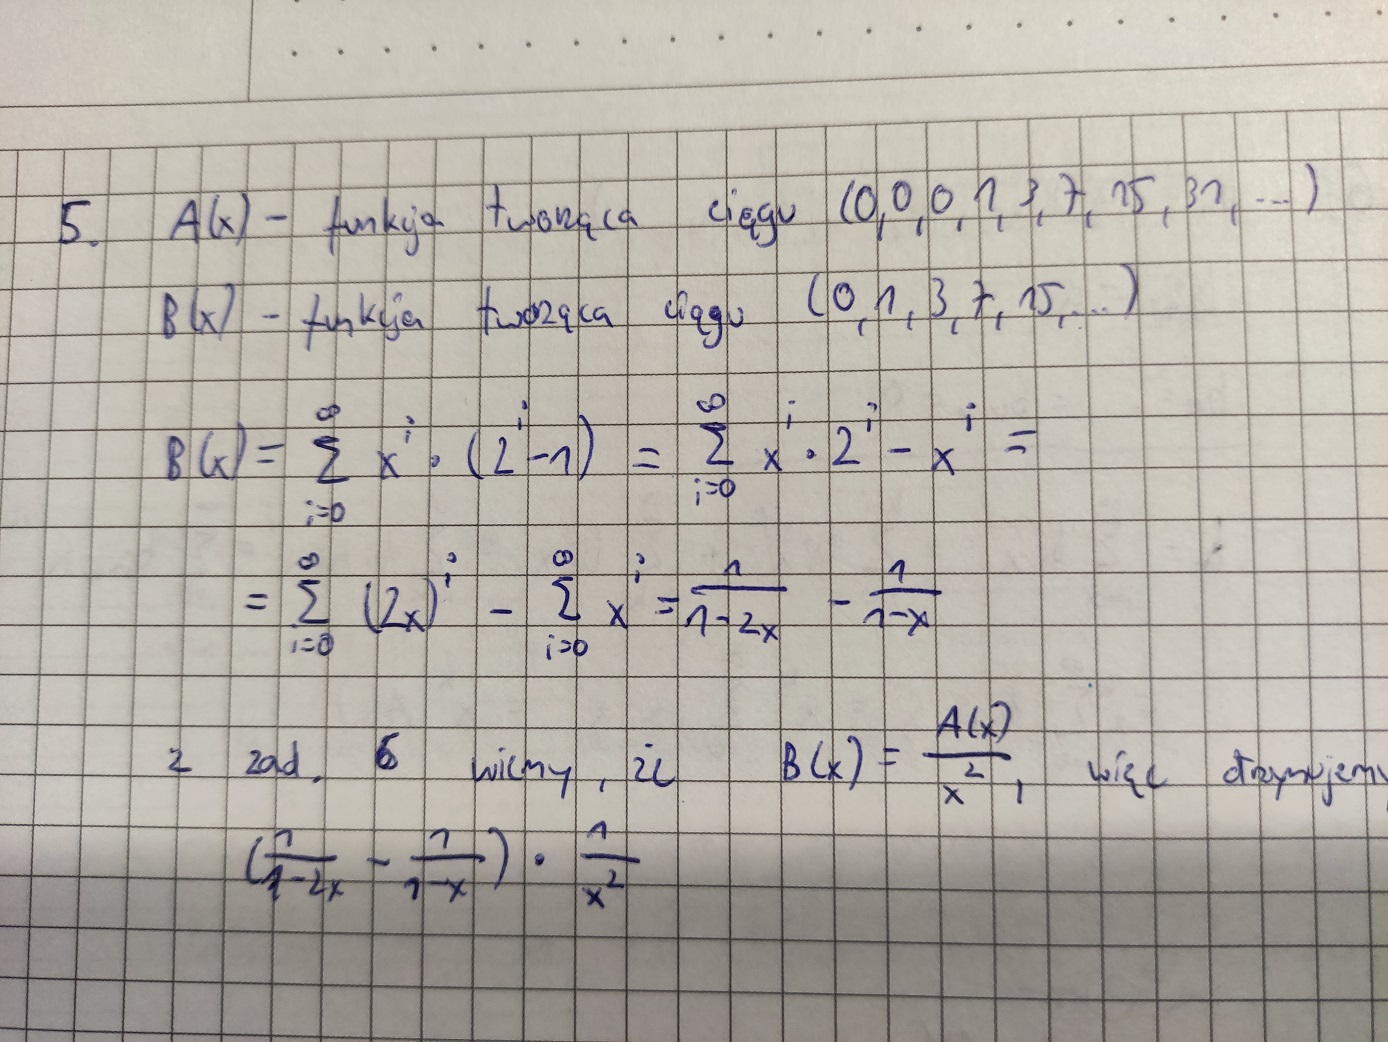 5. A(x) - funkcja tworząca ciągu (0,0,0,1,3,7,15,31,...)
B(x) - funkcja tworząca ciągu (0,1,3,7,15,...)
B(x) = ∑_{i=0}^{∞} x^i · (2^i - 1) = ∑_{i=0}^{∞} x^i · 2^i - x^i =
= ∑_{i=0}^{∞} (2x)^i - ∑_{i=0}^{∞} x^i = \frac{1}{1-2x} - \frac{1}{1-x}
z zad. 6 wiemy, że B(x) = \frac{A(x)}{x^2}, więc otrzymujemy
(\frac{1}{1-2x} - \frac{1}{1-x}) · \frac{1}{x^2}